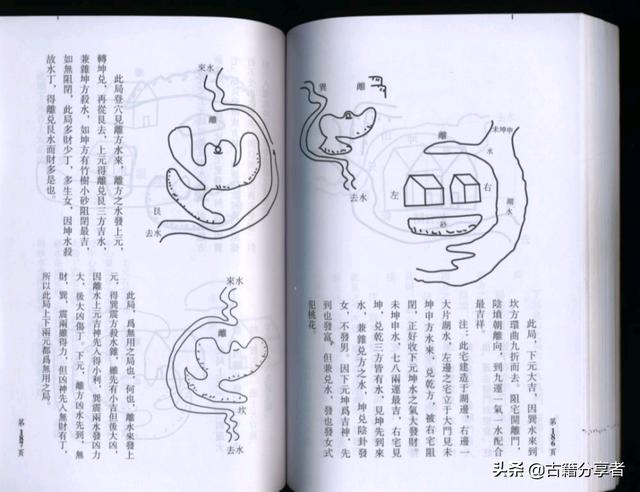 巽
離
去水
未坤申
水
離
湖水
左
右
砂
此局，下元大吉，因巽水來到
坎方環曲九折而去，陽宅開離門，
陰墳朝離向，到九運一氣一水配合
最吉祥。
注：此宅建造于湖邊，右邊一
大片湖水，左邊之宅立于大門見未
坤申方水來，兌乾方，被右宅阻
閉，正好收下元坤水之氣大發財。
未坤申水，七八兩運最吉，右宅見
坤，兌乾三方皆有水，見坤先到來
水，兼雜兌方之水，坤兌陰卦發
女，不發男。因下元坤爲吉神，先
到也發富。但兼兌水，發也發女式
犯桃花。
第186頁
來水
離
艮
去水
此局登穴見離方水來，離方之水發上元，
轉坤兌，再從艮去，上元得離兌艮三方吉水，
兼雜坤方殺水，如坤方有竹樹小砂阻閉最吉，
如無阻閉，此局多財少丁，多生女，因坤水殺
故水丁，得離兌艮水而財多是也。
來水
離
坎
去水
此局，爲無用之局也。何也，離水來發上
元，得巽震方殺水雜，雖先有小吉但後大凶，
因離水上元吉神先入得小利，巽震兩水發凶力
大，後大凶傷丁。下元，離方凶水先到，無
財，巽、震兩離得力，但凶神先入無財有丁，
所以此局上下兩元都爲無用之局。
第187頁
头条 @古籍分享者